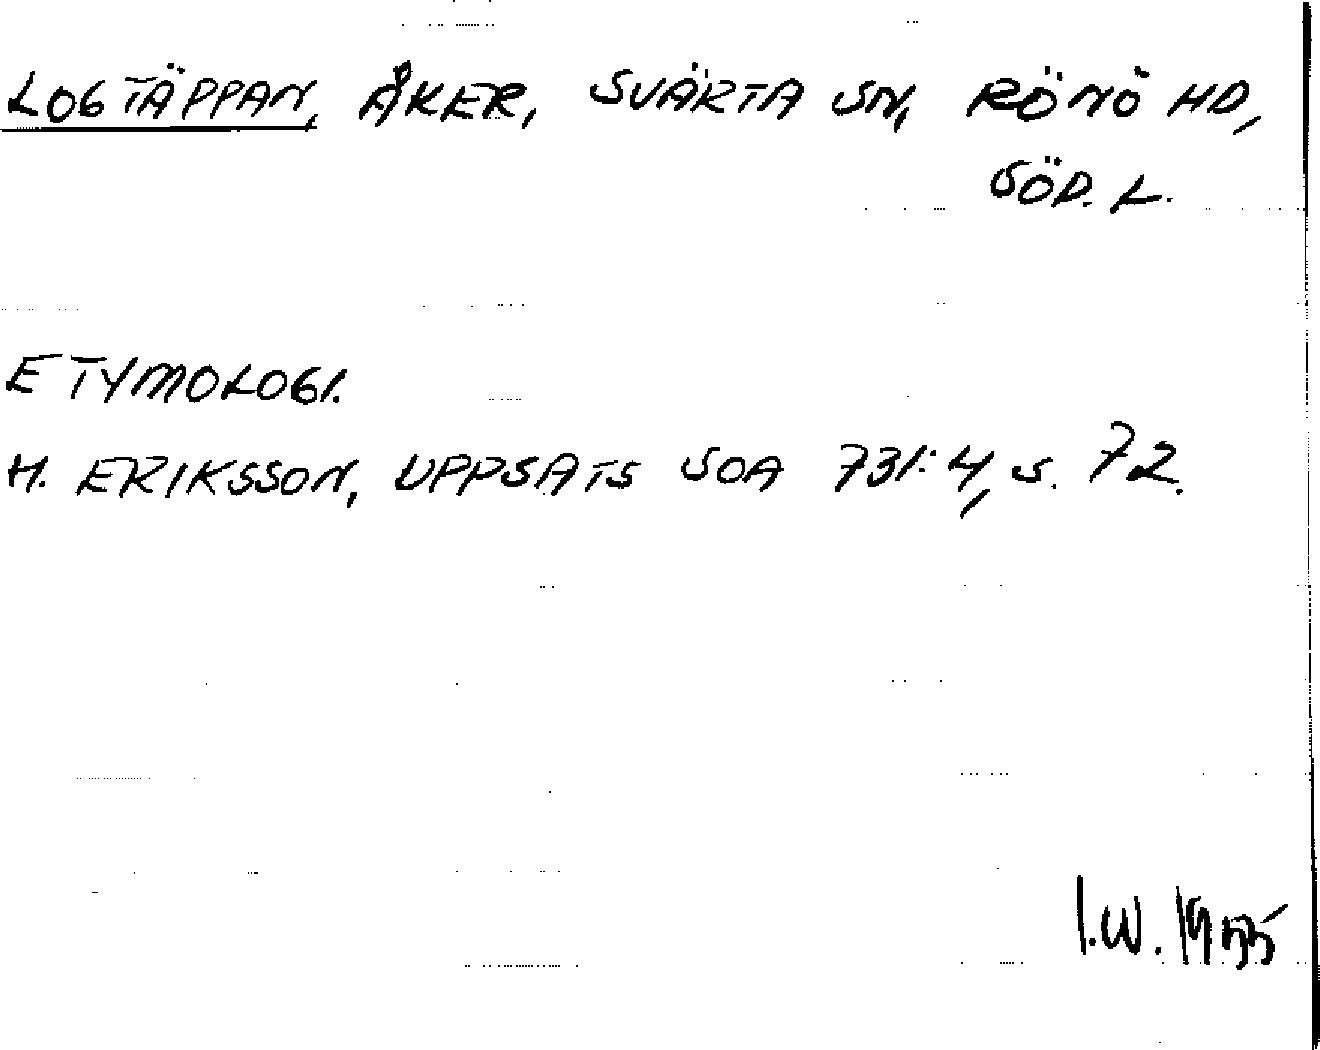 LOGTÄPPAN, ÅKER, SVÄRTA SN, RÖNÖ HD,
SÖD. L.
ETYMOLOGI.
H. ERIKSSON, UPPSATS SOA 731:4, S. 72.
I.W. 1955